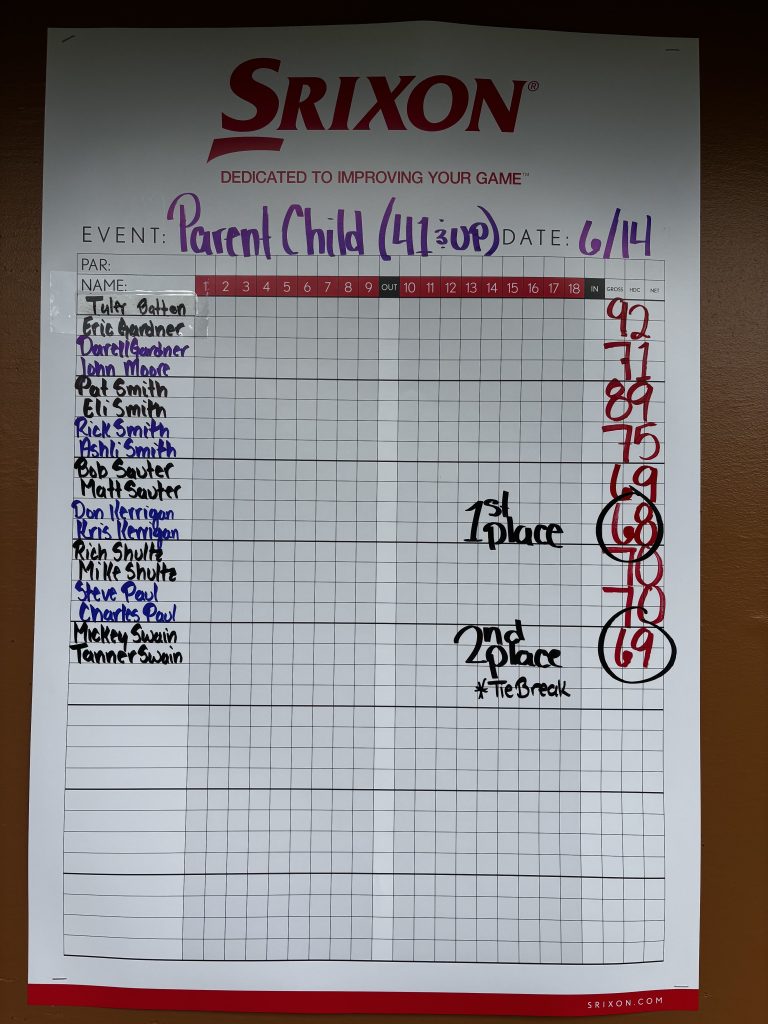 SRIXON®
DEDICATED TO IMPROVING YOUR GAME™
EVENT: Parent Child (41 & UP) DATE: 6/14
PAR:
NAME: 1 2 3 4 5 6 7 8 9 OUT 10 11 12 13 14 15 16 17 18 IN GROSS HDC NET
Tyler Batten
Eric Gardner 92
Darell Gardner
John Moore 71
Pat Smith
Eli Smith 89
Rick Smith
Ashli Smith 75
Bob Sauter
Matt Sauter 69
Don Kerrigan
Kris Kerrigan 1st place 68
Rich Shultz
Mike Shultz 70
Steve Paul
Charles Paul 70
Mickey Swain
Tanner Swain 2nd place 69
*Tie Break
SRIXON.COM